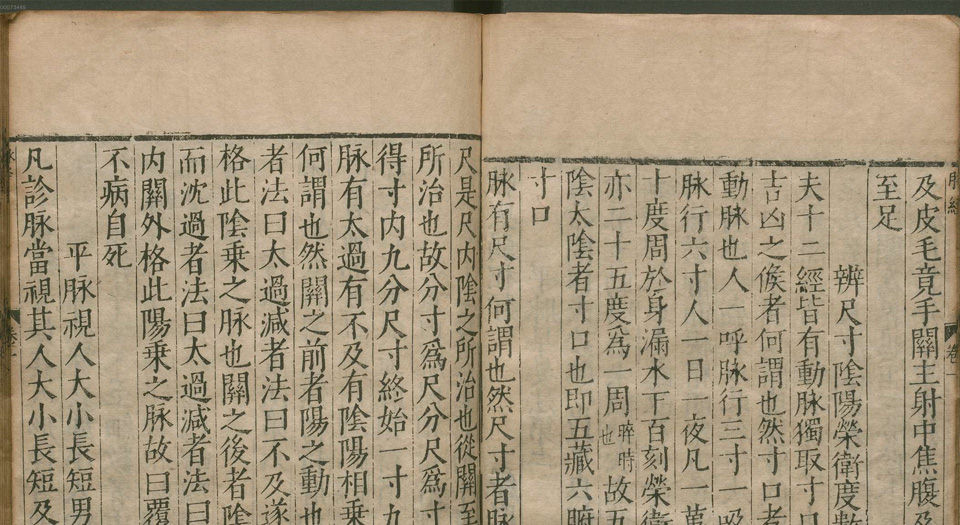 及皮毛竟手關主射中焦腹及
至足
辨尺寸陰陽榮衛度數
夫十二經皆有動脉獨取寸口
吉凶之候者何謂也然寸口者
動脉也人一呼脉行三寸一吸
脉行六寸人一日一夜凡一萬
十度周於身漏水下百刻榮衛
亦二十五度爲一周晬時也故五
陰太陰者寸口也即五藏六腑
寸口
脉有尺寸何謂也然尺寸者脉
尺是尺内陰之所治也從關至
所治也故分寸爲尺分尺爲寸
得寸内九分尺寸終始一寸九
脉有太過有不及有陰陽相乗
何謂也然關之前者陽之動也
者法曰太過減者法曰不及遂
格此陰乗之脉也關之後者陰
而沈過者法曰太過減者法曰
内關外格此陽乗之脉故曰覆
不病自死
平脉視人大小長短男
凡診脉當視其人大小長短及